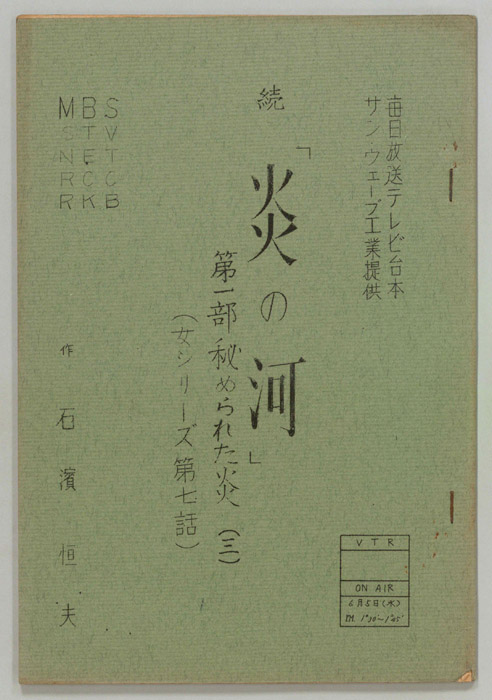 毎日放送テレビ台本
サンウェーブ工業提供
続
「炎の河」
第一部 秘められた炎 (三)
(女シリーズ第七話)
作 石濱恒夫
MBS
STV
NET
RCC
RKB
VTR
ON AIR
6月5日(水)